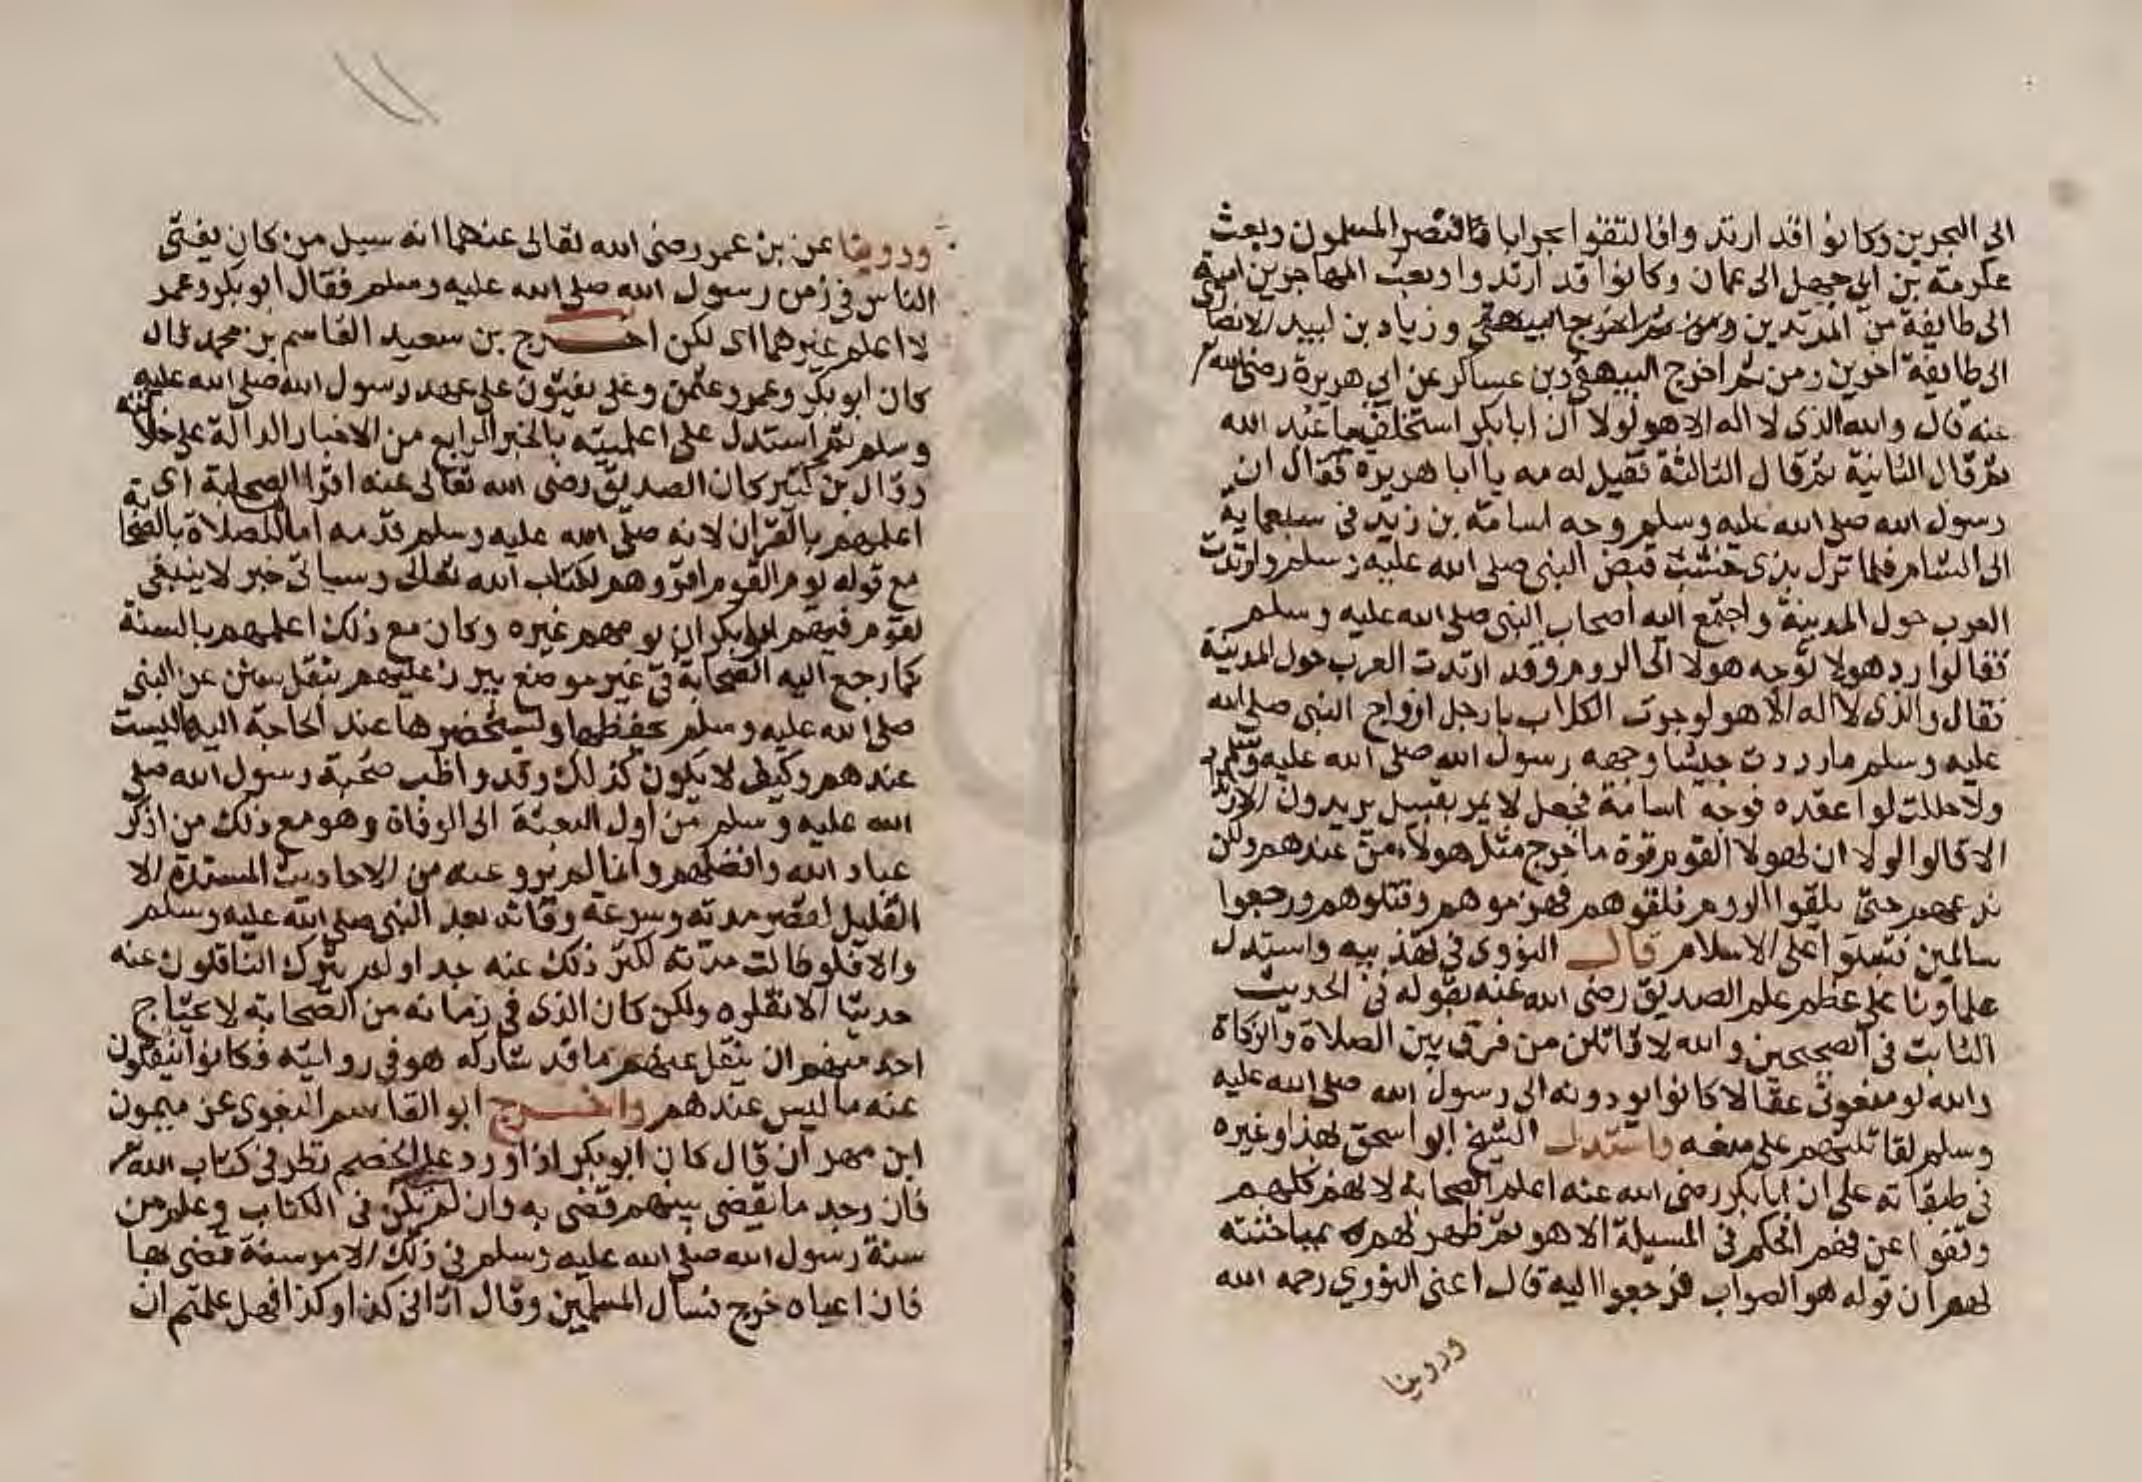 الى البحرين وكانوا قد ارتدوا فالتقوا بجواثا فانتصر المسلمون وبعث
عكرمة بن ابي جهل الى عمان وكانوا قد ارتدوا وبعث المهاجر بن امية
الى طايفة من المرتدين وزياد بن لبيد الانصاري
الى طايفة اخرين ومن ثم اخرج البيهقي وبن عساكر عن ابي هريرة رضي الله
عنه قال والله الذي لا اله الا هو لولا ان ابا بكر استخلف ما عبد الله
ثم قال الثانية ثم قال الثالثة فقيل له مه يا ابا هريرة فقال ان
رسول الله صلى الله عليه وسلم وجه اسامة بن زيد في سبعماية
الى الشام فلما نزل بذي خشب قبض النبي صلى الله عليه وسلم وارتدت
العرب حول المدينة واجتمع اليه اصحاب النبي صلى الله عليه وسلم
فقالوا رد هولا توجه هولا الى الروم وقد ارتدت العرب حول المدينة
فقال والذي لا اله الا هو لو جرت الكلاب بارجل ازواج النبي صلى الله
عليه وسلم ما رددت جيشا وجهه رسول الله صلى الله عليه وسلم
ولا حللت لوا عقده فوجه اسامة فجعل لا يمر بقبيل يريدون الارتداد
الا قالوا لولا ان لهولا القوم قوة ما خرج مثل هولاء من عندهم ولكن
ندعهم حتى يلقوا الروم فلقوهم فهزموهم وقتلوهم ورجعوا
سالمين فثبتوا على الاسلام قال النووي في تهذيبه واستدل
علماونا على عظم علم الصديق رضي الله عنه بقوله في الحديث
الثابت في الصحيحين والله لاقاتلن من فرق بين الصلاة والزكاة
والله لو منعوني عقالا كانوا يودونه الى رسول الله صلى الله عليه
وسلم لقاتلتهم على منعه واستدل الشيخ ابو اسحق بهذا وغيره
في طبقاته على ان ابا بكر رضي الله عنه اعلم الصحابة لانهم كلهم
وقفوا عن فهم الحكم في المسيلة الا هو ثم ظهر لهم بمباحثته
لهم ان قوله هو الصواب فرجعوا اليه قال اعني النووي رحمه الله
وروينا
وروينا عن بن عمر رضي الله تعالى عنهما انه سيل من كان يفتي
الناس في زمن رسول الله صلى الله عليه وسلم فقال ابو بكر وعمر
لا اعلم غيرهما اي لكن اخرج بن سعيد القاسم بن محمد قال
كان ابو بكر وعمر وعثمن وعلي يفتون على عهد رسول الله صلى الله عليه
وسلم ثم استدل على اعلميته بالخبر الرابع من الاخبار الدالة على خلافته
وقال بن كثير كان الصديق رضي الله تعالى عنه اقرا الصحابة اي
اعلمهم بالقران لانه صلى الله عليه وسلم قدمه اماما للصلاة بالصحابة
مع قوله يوم القوم اقروهم لكتاب الله تعالى وسياتي خبر لا ينبغي
لقوم فيهم ابو بكر ان يومهم غيره وكان مع ذلك اعلمهم بالسنة
كما رجع اليه الصحابة في غير موضع يبرز عليهم بنقل سنن عن النبي
صلى الله عليه وسلم يحفظها ويستحضرها عند الحاجة اليها ليست
عندهم وكيف لا يكون كذلك وقد واظب صحبة رسول الله صلى
الله عليه وسلم من اول البعثة الى الوفاة وهو مع ذلك من اذكى
عباد الله وافضلهم وانما لم يرو عنه من الاحاديث المسندة الا
القليل لقصر مدته وسرعة وفاته بعد النبي صلى الله عليه وسلم
والا فلو طالت مدته لكثر ذلك عنه جدا ولم يترك الناقلون عنه
حديثا الا نقلوه ولكن كان الذي في زمانه من الصحابة لا يحتاج
احد منهم ان ينقل عنهم ما قد شاركه هو في روايته فكانوا ينقلون
عنه ما ليس عندهم واخرج ابو القاسم البغوي عن ميمون
ابن مهران قال كان ابو بكر اذا ورد عليه الخصم نظر في كتاب الله
فان وجد ما يقضي بينهم قضى به وان لم يكن في الكتاب وعلم من
سنة رسول الله صلى الله عليه وسلم في ذلك الامر سنة قضى بها
فان اعياه خرج فسال المسلمين وقال اتاني كذا وكذا فهل علمتم ان